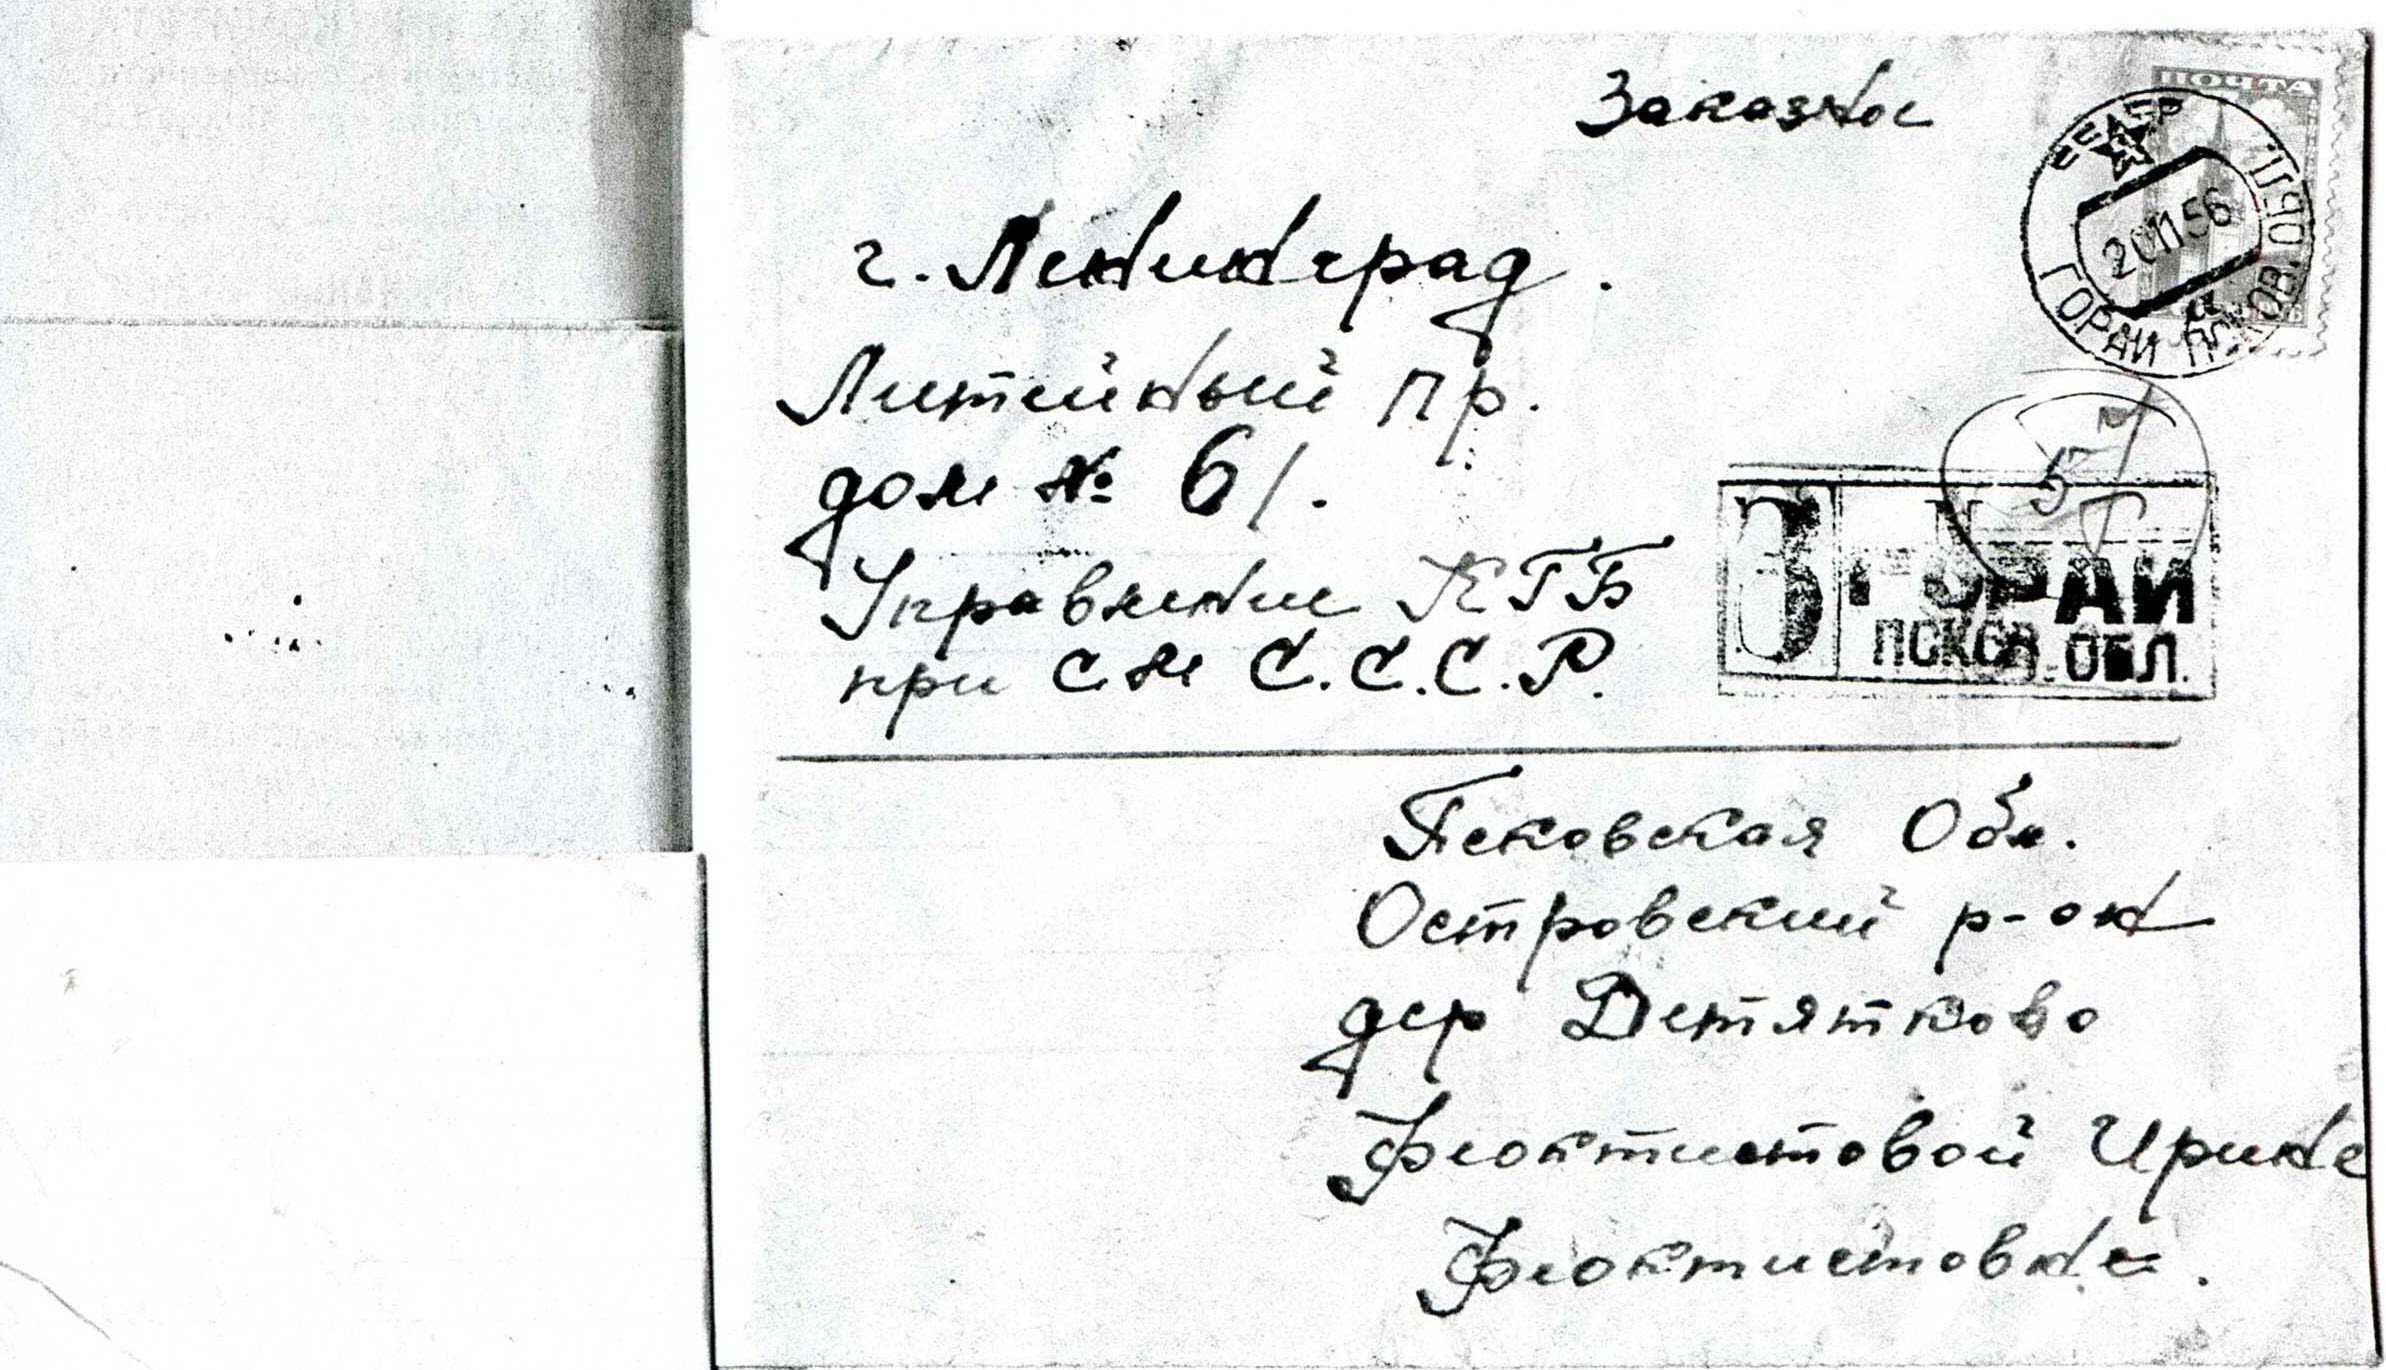 Заказное
ПОЧТА
СССР
20 11 56
ГОРАЙ ПСКОВ. ОБЛ
г. Ленинград.
Литейный пр.
дом № 6/.
57
Управление КГБ
при С.М С.С.С.Р.
З ГОРАЙ
ПСКОВ. ОБЛ.
Псковская Обл.
Островский р-он
дер Детятково
Феоктистовой Ирине
Феоктистовне.